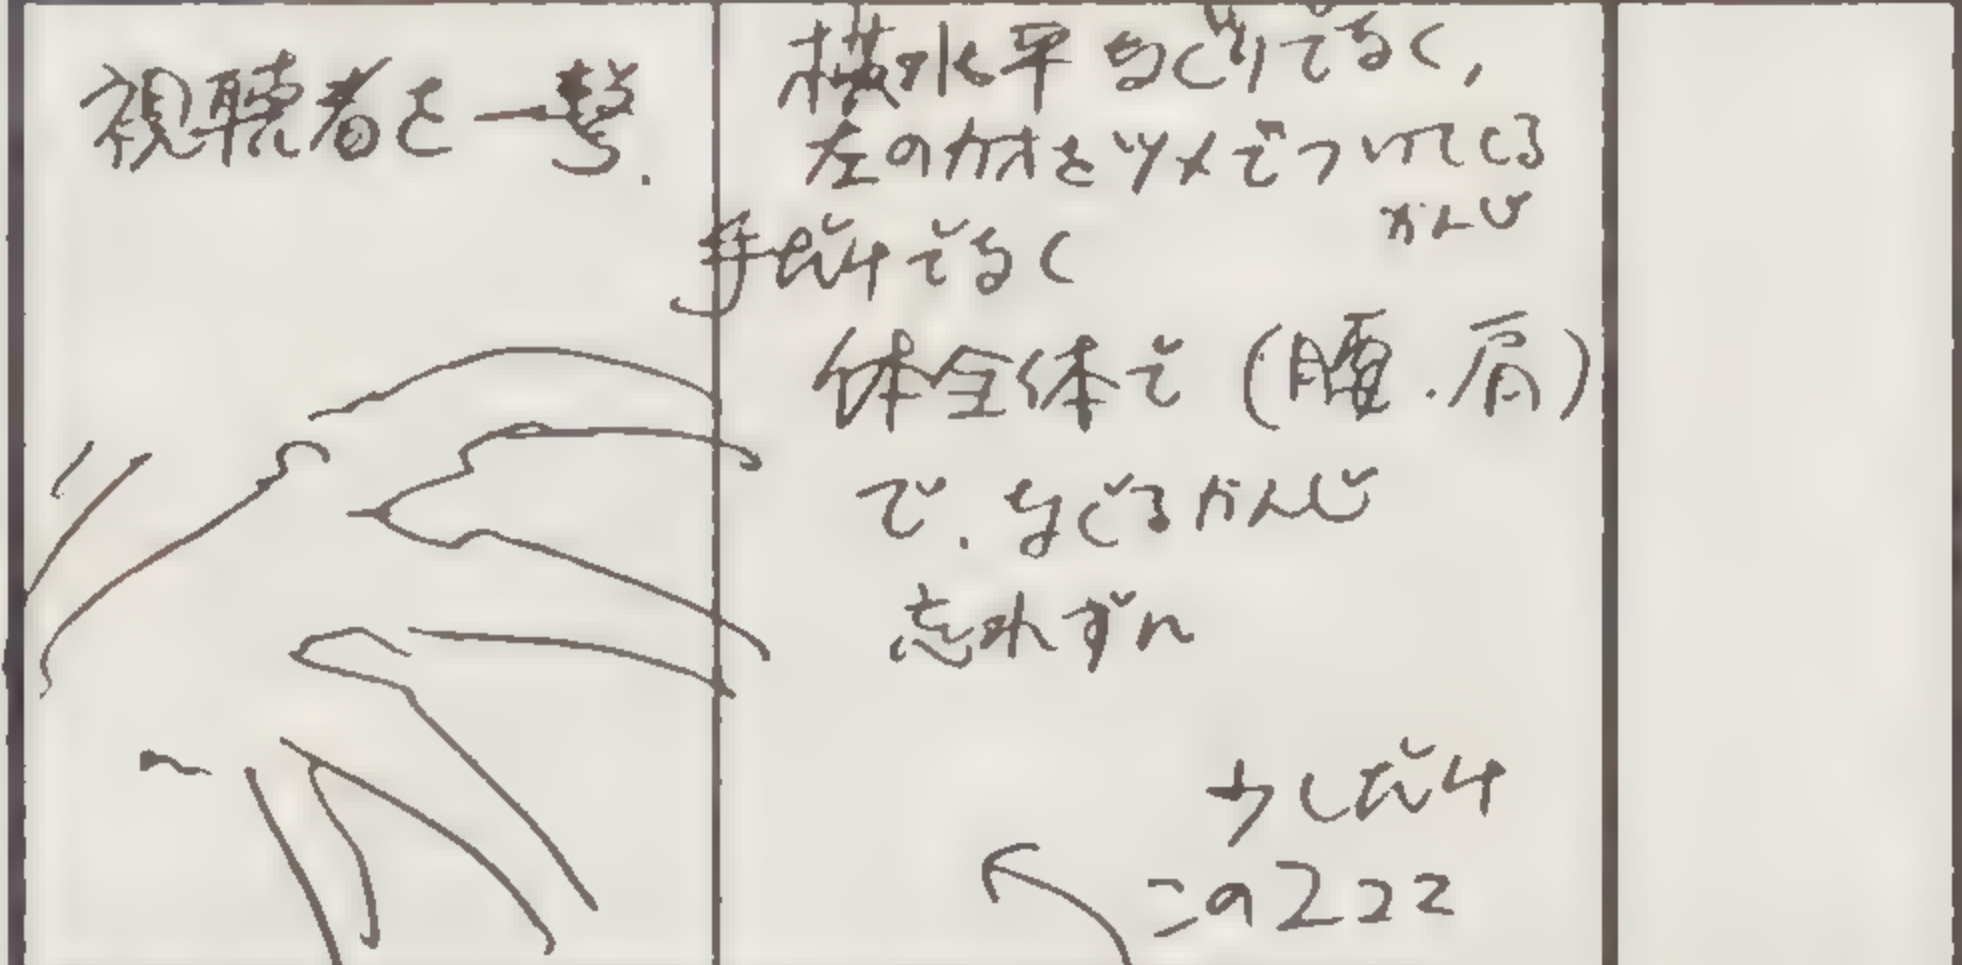 視聴者を一撃.
横水平なぐりでなく,
左のカオをツメでついてくる
かんじ
手だけでなく
体全体で (腰・肩)
で. なぐるかんじ
忘れずに
少しだけ
この